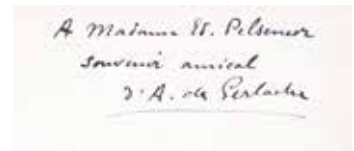 A Madame W. Pelseneer
souvenir amical
d'A. de Gerlache